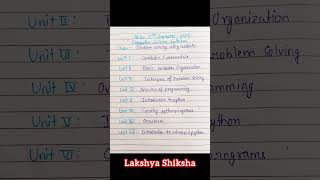 BSc 1st Semester 2023
Computer Science Syllabus
Problem Solving using Computer
Unit I : Computer Fundamentals
Unit II : Basic Computer Organization
Unit III : Techniques of Problem Solving
Unit IV : Overview of programming
Unit V : Introduction to python
Unit VI : python programs
Unit VII : Structures
Unit VIII : Introduction to Advanced python
Unit II :
Unit III :
Unit IV :
Unit V :
Unit VI :
Organization
Problem Solving
programs
Lakshya Shiksha